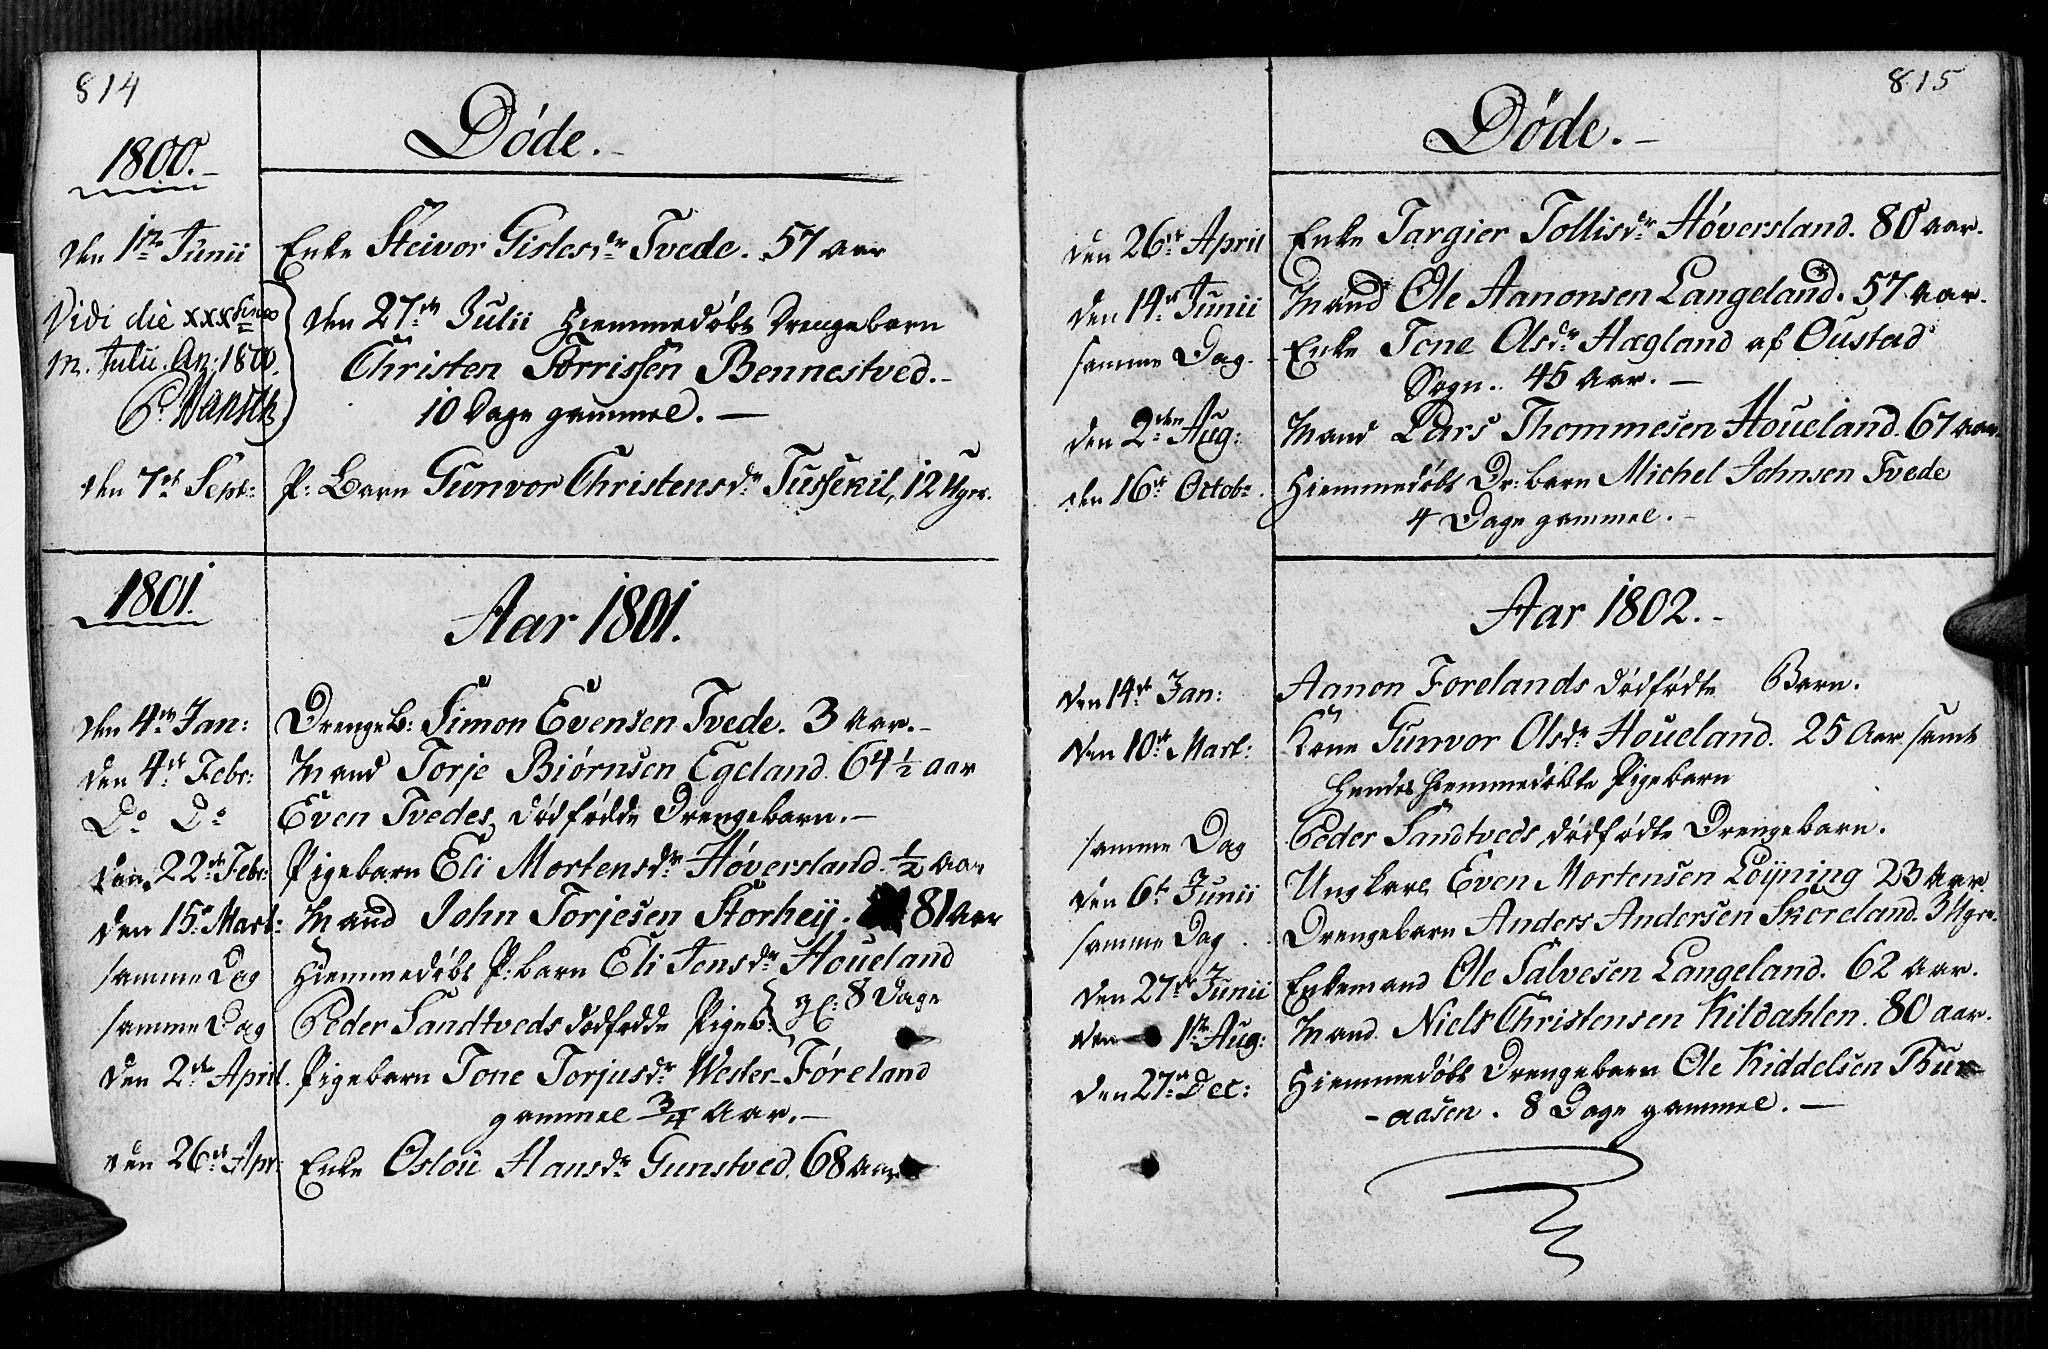 814
Døde.
1800.
den 1ste Junii Enke Steivor Gislesdr Tvede. 57 aar
Vidi die xxx
m. Julii. An: 1800.
P. Hansch
den 27de Julii Hiemmedøbt Drengebarn
Christen Torrissen Bennestved.
10 Dage gammel.
den 7de Sept: P: Barn Gunvor Christensdr Tussekil, 12 Uger.
1801.
Aar 1801.
den 4de Jan: Drengeb: Simon Evensen Tvede. 3 Aar.
den 4de Febr: Mand Torje Biørnsen Egeland. 64 1/2 aar
Do Do Even Tvedes dødfødde Drengebarn.
den 22de Febr: Pigebarn Eli Mortensdr Høversland. 1/2 Aar
den 15de Mart: Mand John Torjesen Storheÿ. 81 Aar
samme Dag Hiemmedøbt P: barn Eli Jensdr Houeland
gl: 8 Dage
samme Dag Peder Sandtveds dødfødde Pigeb:
den 2de April. Pigebarn Tone Torjusdr Wester-Føreland
gammel 3/4 Aar.
den 26de Apr: Enke Oslou Hansdr Gunstved. 68 Aar
815
Døde.
den 26de April Enke Targier Tollisdr Høversland. 80 aar.
den 14de Junii Mand Ole Aanonsen Langeland. 57 Aar.
samme Dag. Enke Tone Olsdr Hægland af Oustad
Sogn. 45 Aar.
den 2den Aug: Mand Lars Thommesen Houeland. 67 aar.
den 16de Octobr. Hiemmedøbt Dr: barn Michel Johnsen Tvede
4 Dage gammel.
Aar 1802.
den 14de Jan: Aanon Forelands dødfødte Barn.
den 10de Mart: Kone Gunvor Olsdr Houeland. 25 Aar samt
Hendes Hiemmedøbte Pigebarn
samme Dag Peder Sandtveds dødfødte Drengebarn.
den 6te Junii Ungkarl Even Mortensen Löÿning 23 Aar
samme Dag Drengebarn Anders Andersen Skereland. 3 Uger.
den 27de Junii Enkemand Ole Salvesen Langeland. 62 Aar.
den 1ste Aug: Mand Niels Christensen Kildahlen. 80 aar.
den 27de Dec: Hiemmedøbt Drengebarn Ole Kiddelsen Bur-
-aasen. 8 Dage gammel.